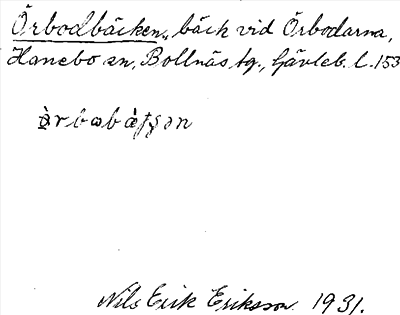 Örbodbäcken, bäck vid Örbodarna,
Hanebo sn, Bollnäs tg., Gävleb. l. 153
Nils Erik Eriksson 1931.